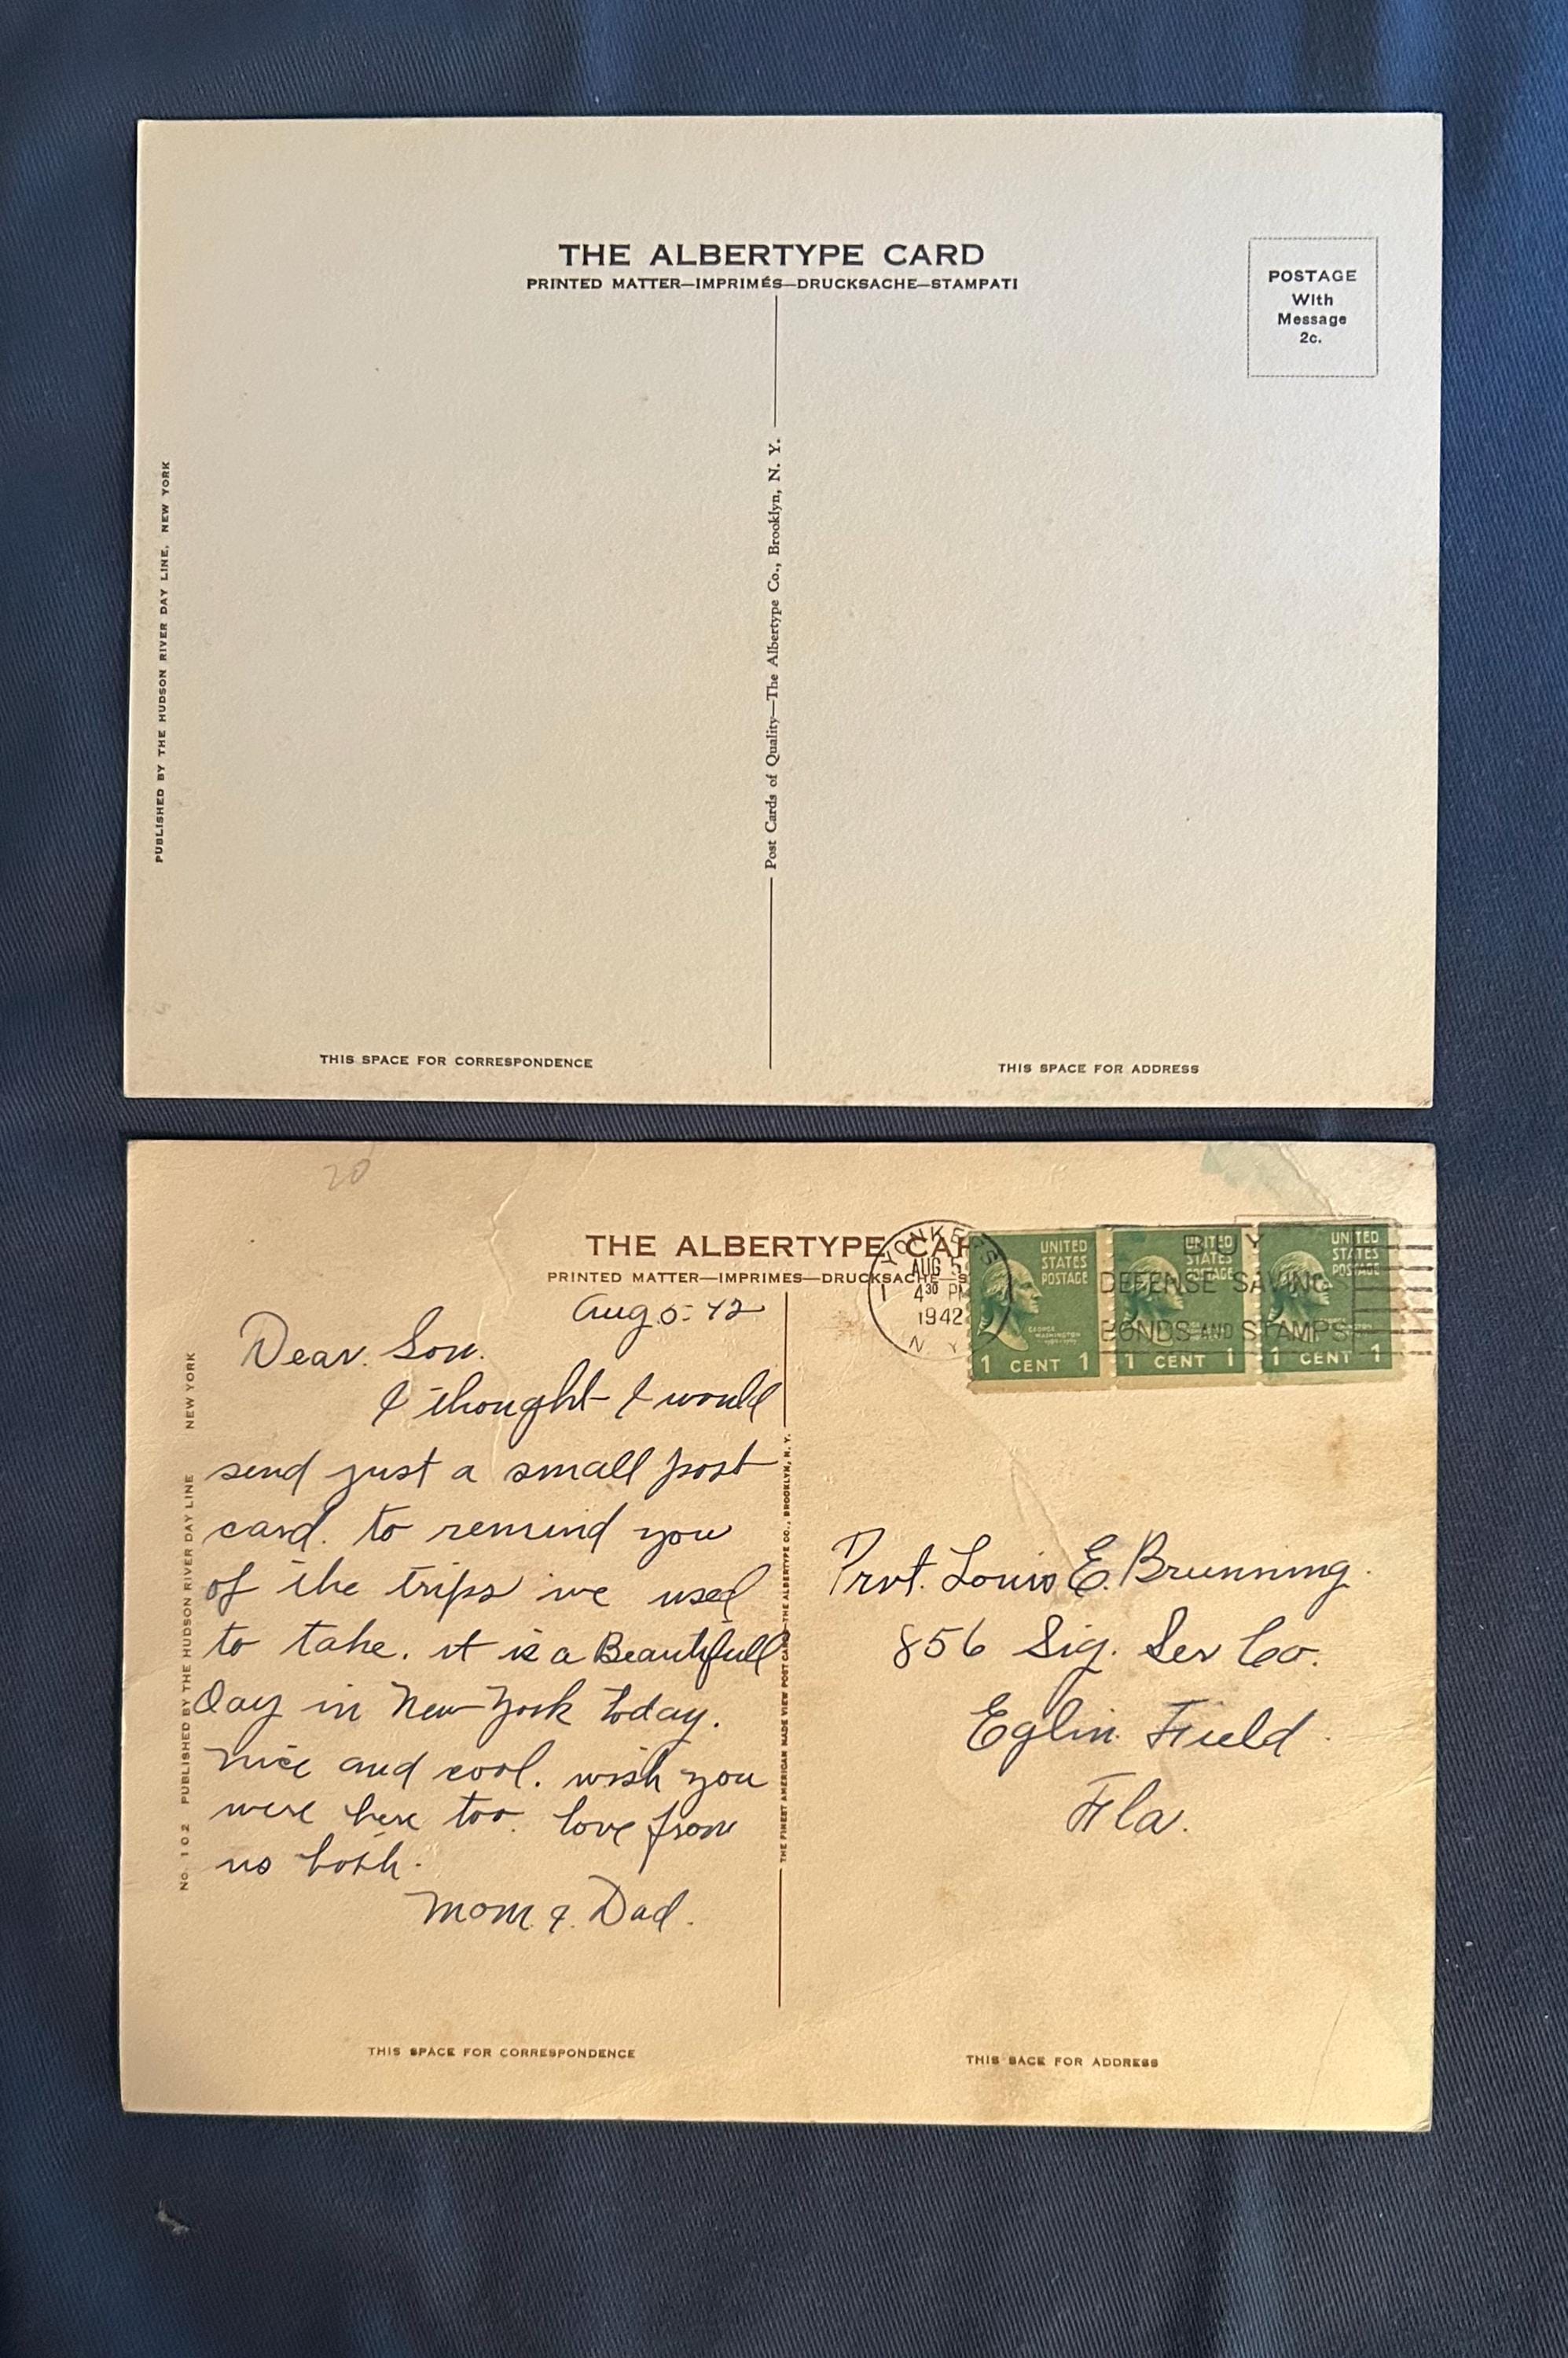 THE ALBERTYPE CARD
PRINTED MATTER—IMPRIMÉS—DRUCKSACHE—STAMPATI
POSTAGE
With
Message
2c.
PUBLISHED BY THE HUDSON RIVER DAY LINE, NEW YORK
Post Cards of Quality—The Albertype Co., Brooklyn, N. Y.
THIS SPACE FOR CORRESPONDENCE
THIS SPACE FOR ADDRESS
20
THE ALBERTYPE CAR
PRINTED MATTER—IMPRIMES—DRUCKSACHE—S
YONKERS
AUG 5
4 30 PM
1942
N Y
1
BUY
DEFENSE SAVING
BONDS AND STAMPS
UNITED
STATES
POSTAGE
GEORGE
WASHINGTON
1 CENT 1
UNITED
STATES
POSTAGE
1 CENT 1
UNITED
STATES
POSTAGE
1 CENT 1
Aug 5-42
Dear. Son.
I thought I would
send just a small post
card. to remind you
of the trips we used
to take. it is a Beautifull
day in New York today.
nice and cool. wish you
were here too. love from
us both.
Mom. & Dad.
No. 102 PUBLISHED BY THE HUDSON RIVER DAY LINE NEW YORK
THE FINEST AMERICAN MADE VIEW POST CARDS—THE ALBERTYPE CO., BROOKLYN, N. Y.
Prvt. Louis E. Brunning.
856 Sig. Ser Co.
Eglin Field
Fla.
THIS SPACE FOR CORRESPONDENCE
THIS SACE FOR ADDRESS